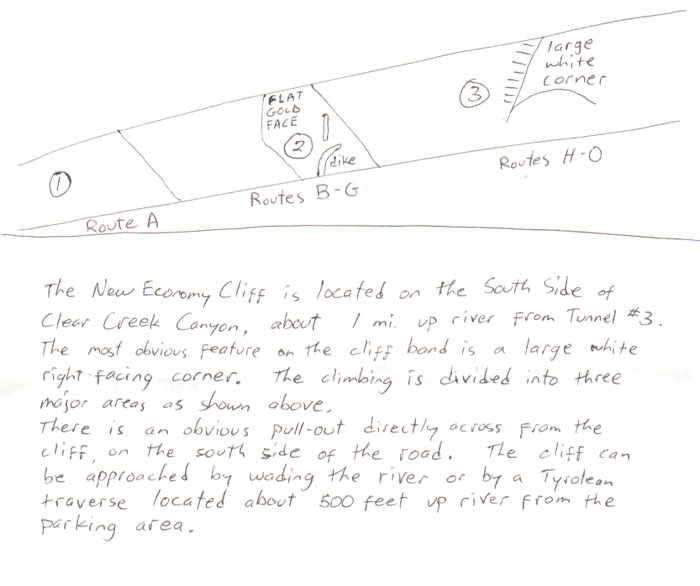 large
white
corner
3
FLAT
GOLD
FACE
2
dike
1
Routes H-O
Routes B-G
Route A
The New Economy Cliff is located on the South Side of
Clear Creek Canyon, about 1 mi. up river from Tunnel #3.
The most obvious feature on the cliff band is a large white
right-facing corner. The climbing is divided into three
major areas as shown above.
There is an obvious pull-out directly across from the
cliff, on the south side of the road. The cliff can
be approached by wading the river or by a Tyrolean
traverse located about 500 feet up river from the
parking area.